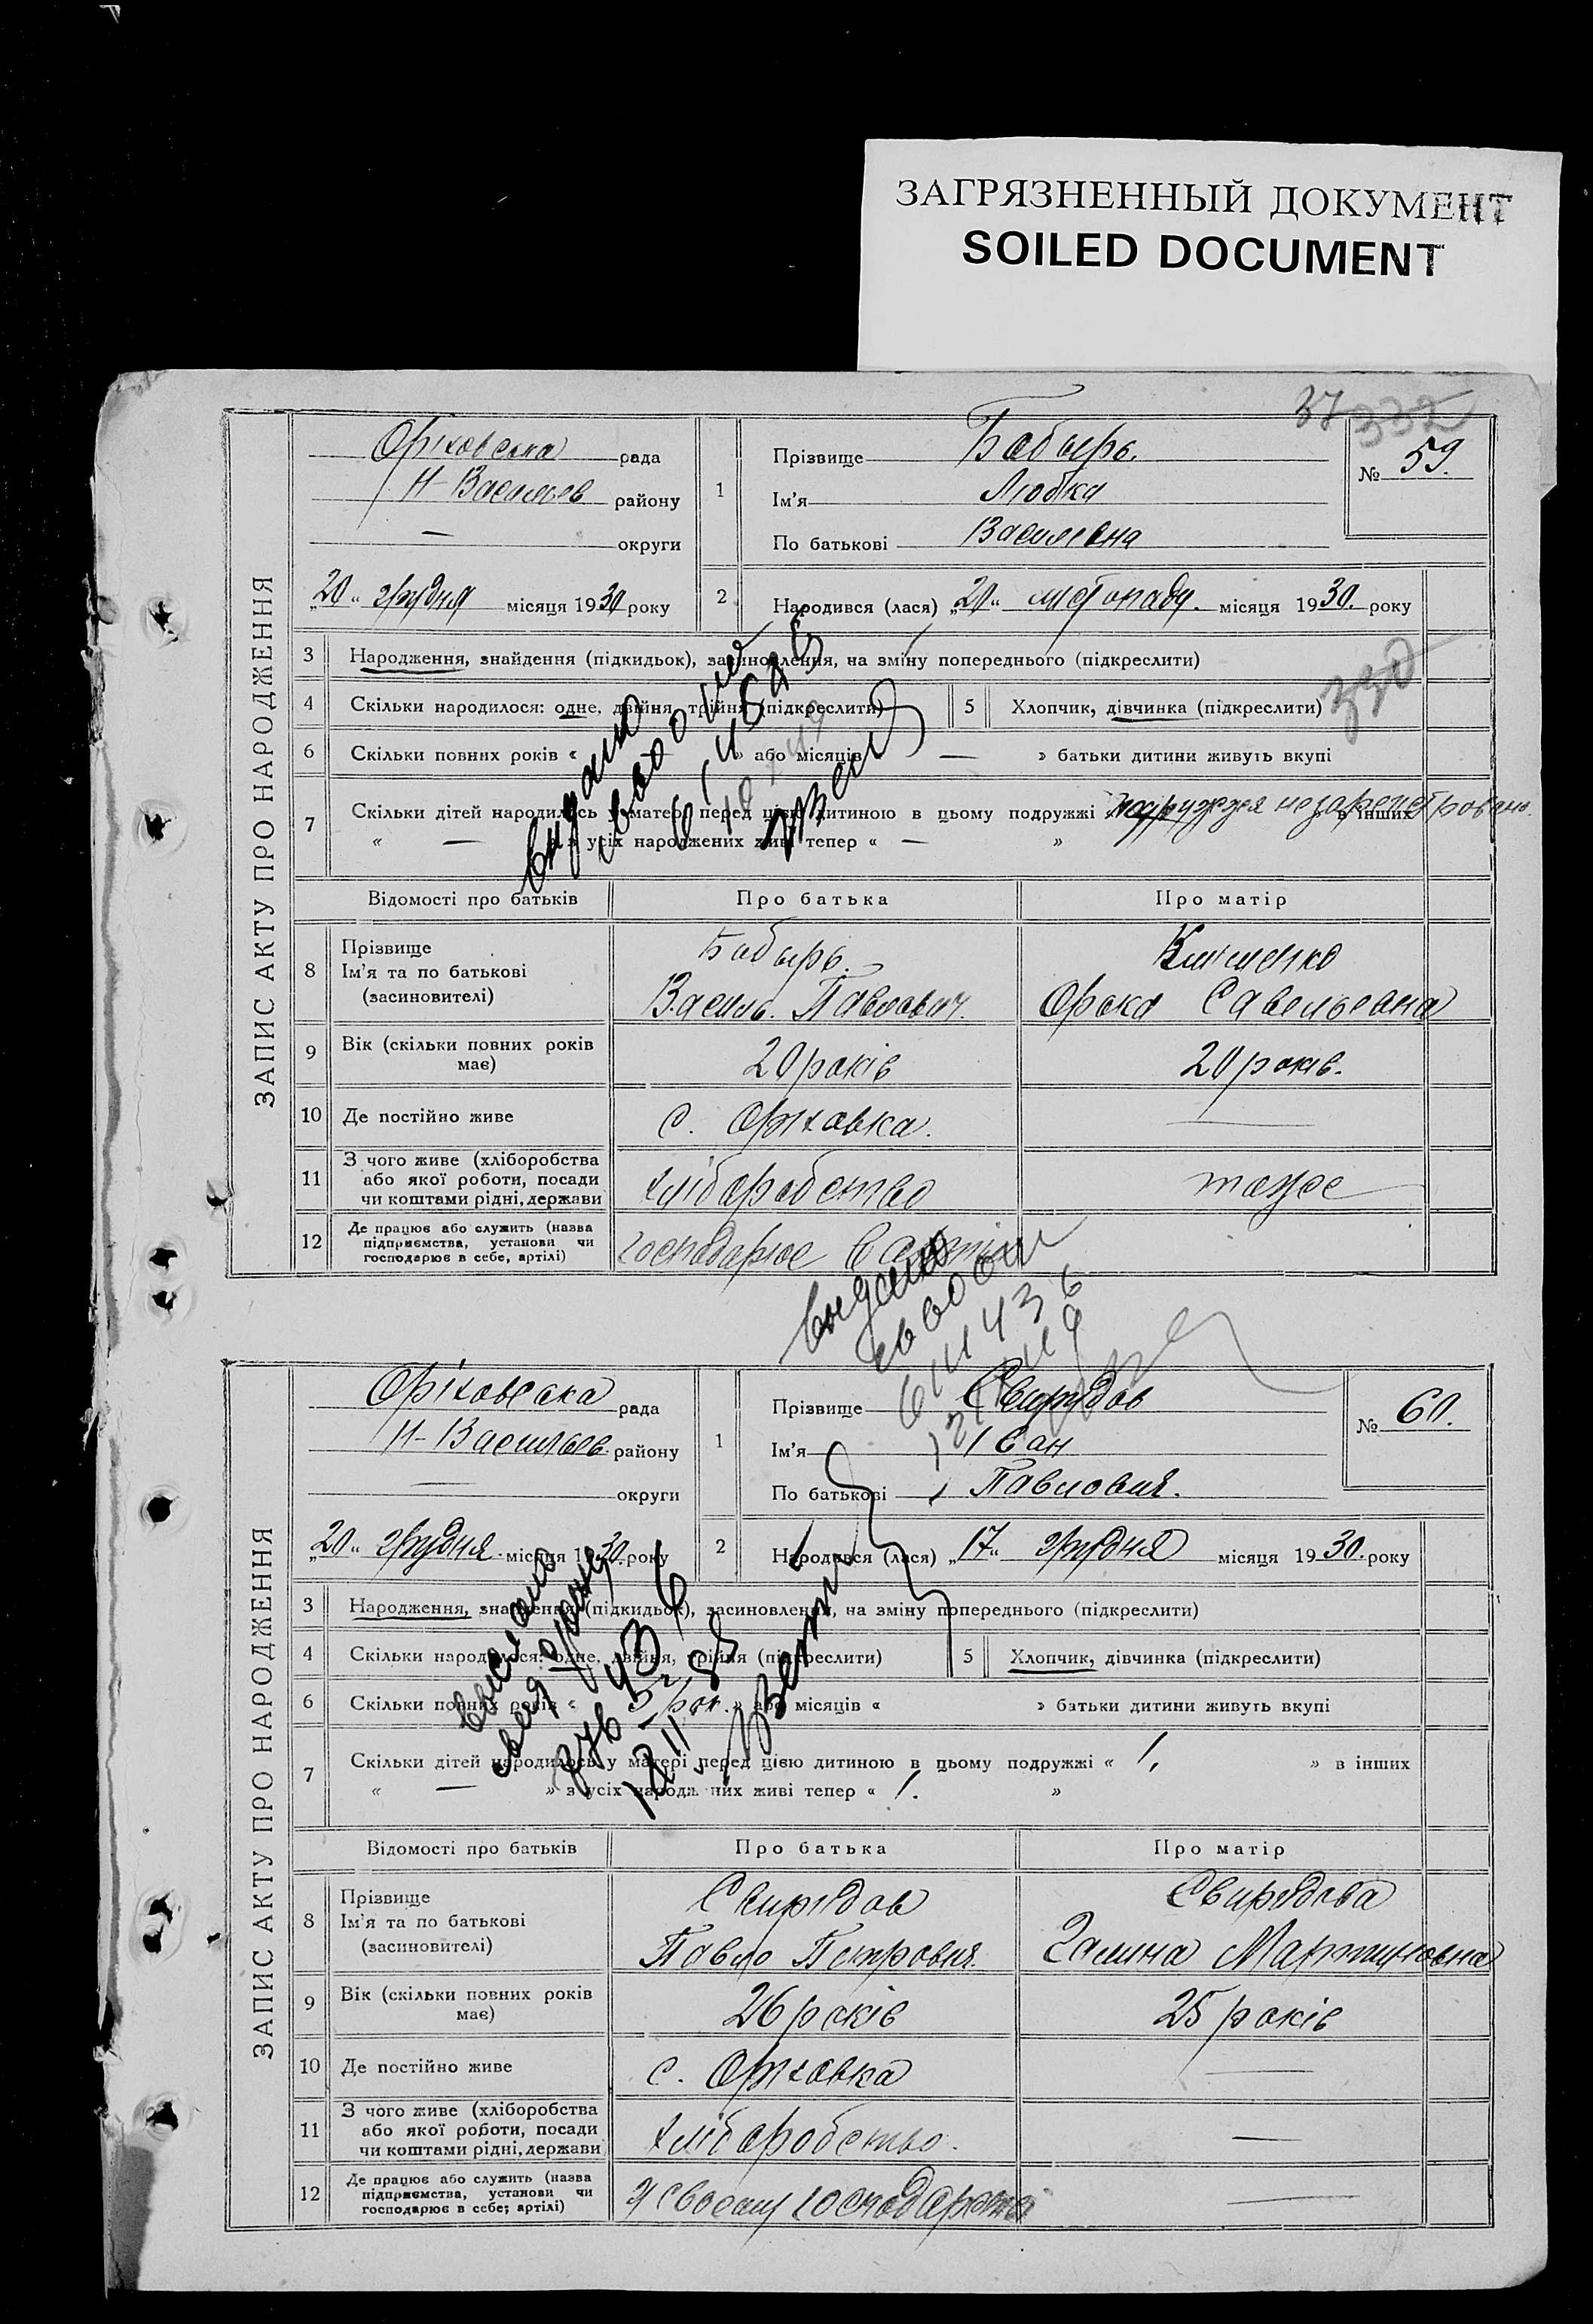 ЗАГРЯЗНЕННЫЙ ДОКУМЕНТ
SOILED DOCUMENT
37 332
ЗАПИС АКТУ ПРО НАРОДЖЕННЯ
Оріховська рада
Н-Васильев району
— округи
1
Прізвище Бабырь
Ім'я Любка
По батькові Василевна
№ 59.
„20“ грудня місяця 1930 року
2 Народився (лася) „20“ листопаду. місяця 1930. року
3 Народження, знайдення (підкидьок), засиновлення, на зміну попереднього (підкреслити)
330
4 Скільки народилося: одне, двійня, трійня (підкреслити) 5 Хлопчик, дівчинка (підкреслити)
6 Скільки повних років « » або місяців — » батьки дитини живуть вкупі
7 Скільки дітей народилось у матері перед цією дитиною в цьому подружжі « » в інших
« — » з усіх народжених живі тепер « — »
видано
Відомості про батьків Про батька Про матір
8 Прізвище
Ім'я та по батькові
(засиновителі)
Бабырь.
Василь. Павлович.
Клименко
Савельевна
9 Вік (скільки повних років має) 20 років 20 років.
10 Де постійно живе с. Оріховка. —
11 З чого живе (хліборобства або якої роботи, посади чи коштами рідні, держави хліборобство тоже
12 Де працює або служить (назва підприємства, установи чи господарює в себе, артілі) господарює в
видано
ЗАПИС АКТУ ПРО НАРОДЖЕННЯ
Оріховська рада
Н-Васильев. району
— округи
1
Прізвище Свирідов
Ім'я Іван
По батькові Павлович.
№ 60.
„20“ грудня. місяця 1930. року
2 Народився (лася) „17“ грудня місяця 1930. року
3 Народження, знайдення (підкидьок), засиновлення, на зміну попереднього (підкреслити)
4 Скільки народилося: одне, двійня, трійня (підкреслити) 5 Хлопчик, дівчинка (підкреслити)
6 Скільки повних років « 5 рок. » або місяців « » батьки дитини живуть вкупі
7 Скільки дітей народилось у матері перед цією дитиною в цьому подружжі « 1, » в інших
« — » з усіх народжених живі тепер « 1. »
Відомості про батьків Про батька Про матір
8 Прізвище
Ім'я та по батькові
(засиновителі)
Свирідов
Павло Петрович.
Свирідова
Галина Мартиновна
9 Вік (скільки повних років має) 26 років 25 років
10 Де постійно живе с. Оріховка —
11 З чого живе (хліборобства або якої роботи, посади чи коштами рідні, держави хліборобство. —
12 Де працює або служить (назва підприємства, установи чи господарює в себе; артілі) У своему господарстві —